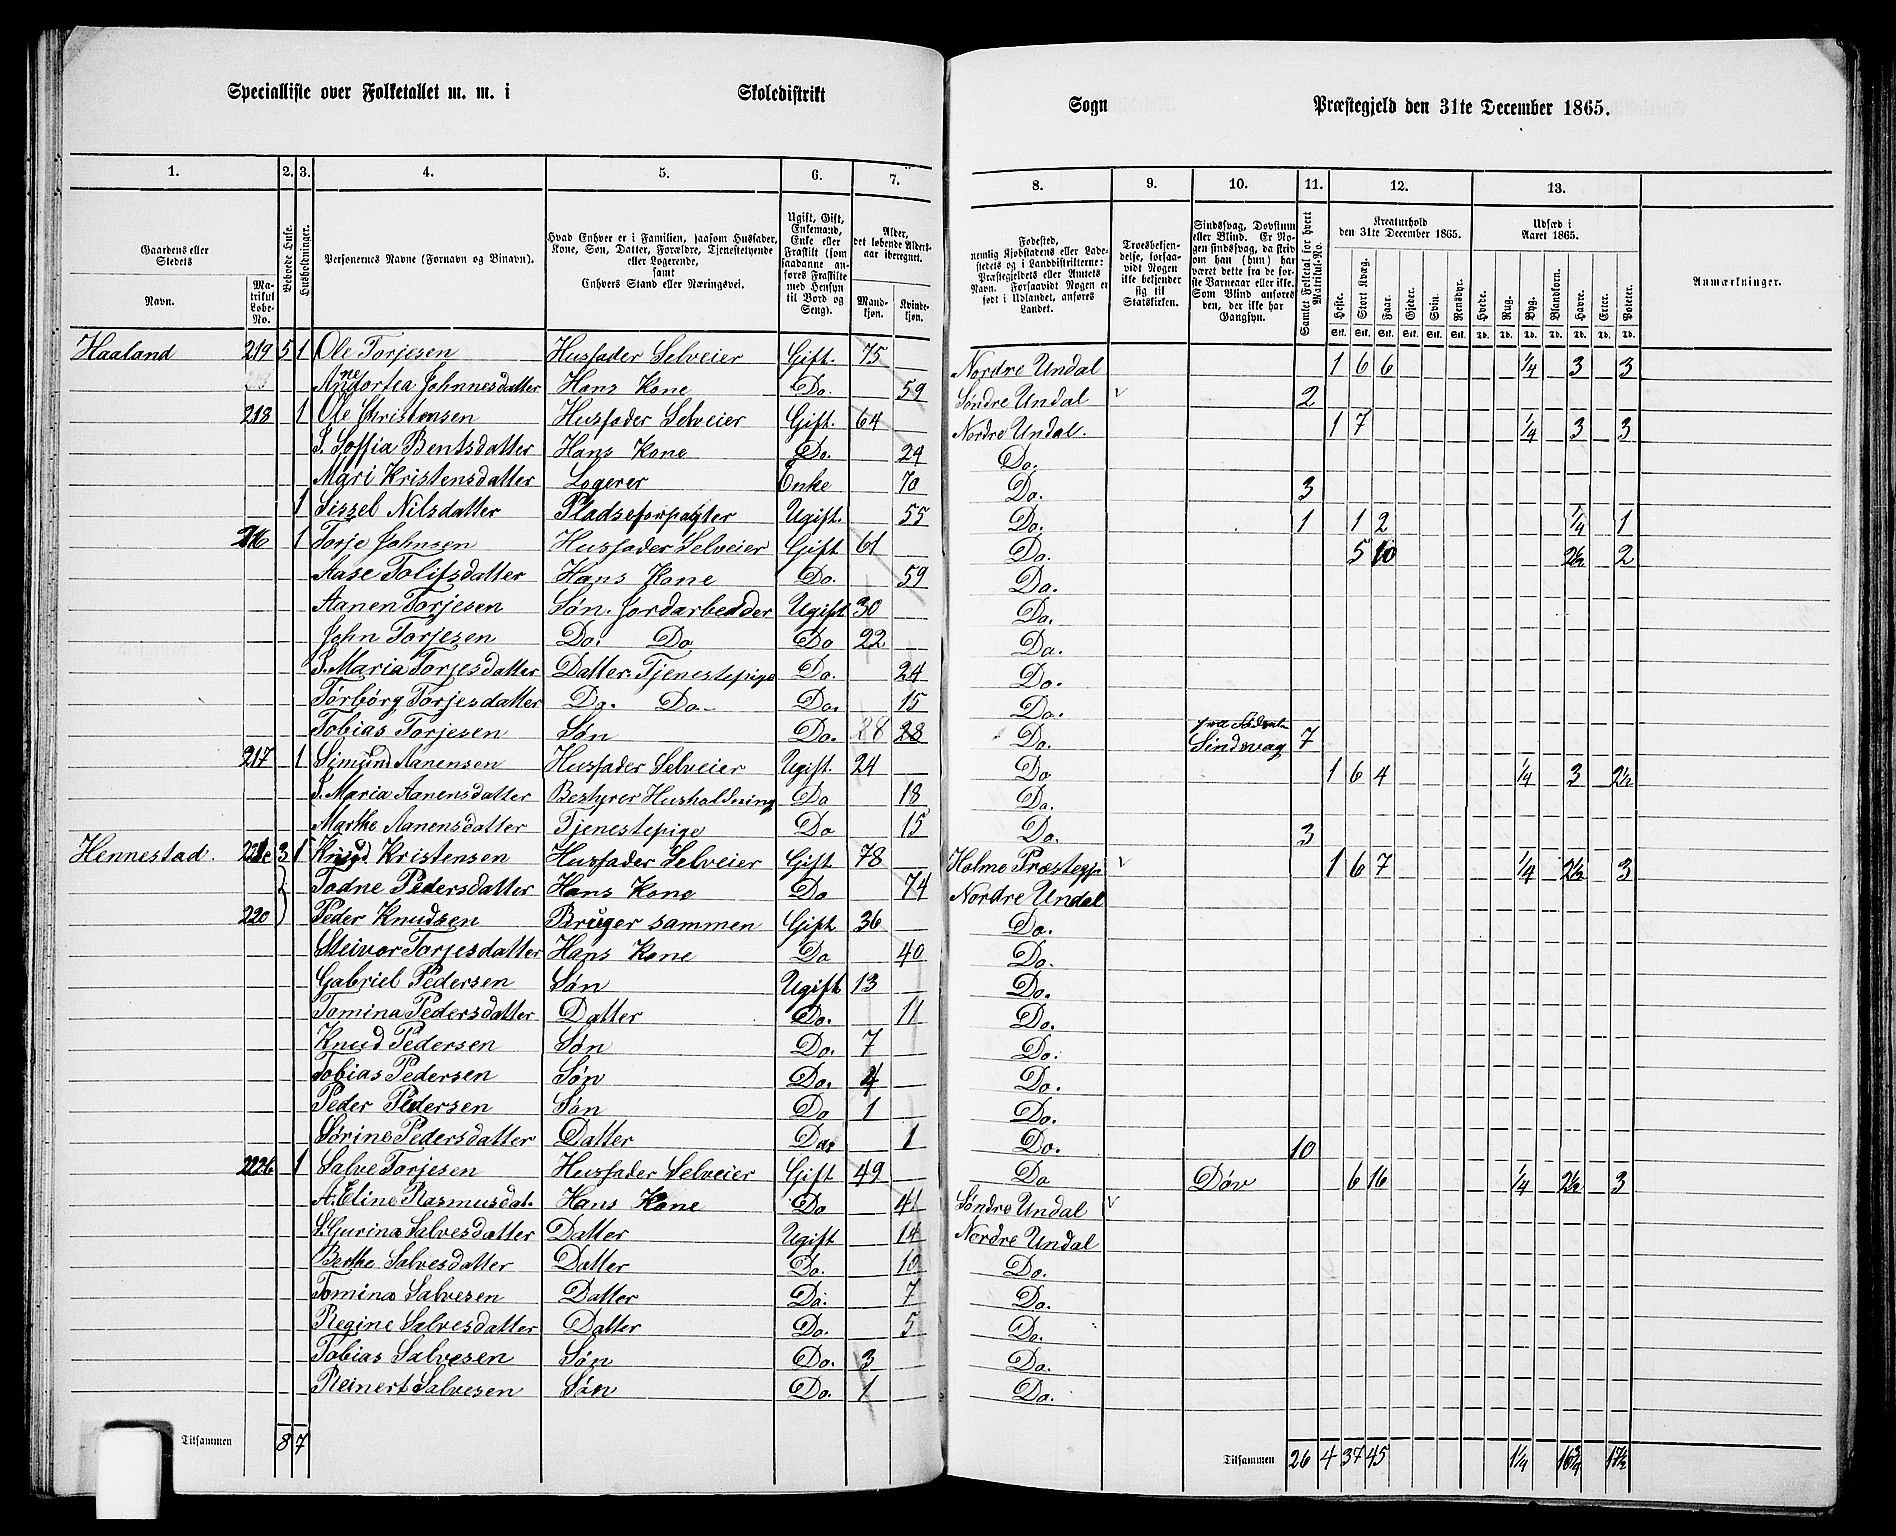 Specialliste over Folketallet m. m. i Skoledistrikt Sogn Præstegjeld den 31te December 1865.
1. 2. 3. 4. 5. 6. 7. 8. 9. 10. 11. 12. 13.
Gaardens eller Stedets Navn. Matrikul Løbe-No. Beboede Huse. Husholdninger. Personernes Navne (Fornavn og Binavn). Hvad Enhver er i Familien, saasom Husfader, Kone, Søn, Datter, Forældre, Tjenestetyende eller Logerende, samt Enhvers Stand eller Næringsvei. Ugift, Gift, Enkemand, Enke eller Fraskilt (som saadanne anføres Fraskilte med Hensyn til Bord og Seng). Alder, det løbende Aldersaar iberegnet. Mandkjøn. Kvindekjøn.
Fødested, nemlig Kjøbstadens eller Ladestedets og i Landdistrikterne: Præstegjeldets eller Amtets Navn. Forsaavidt Nogen er født i Udlandet, anføres Landet. Troesbekjendelse, forsaavidt Nogen ikke bekjender sig til Statskirken. Sindssvag, Døvstum eller Blind. Er Nogen sindssvag, da skrives om han (hun) har været dette fra de første Barneaar eller ikke. Som Blind anføres den, der ikke har Gangsyn. Samlet Folketal for hvert Matrikul-No. Kreaturhold den 31te December 1865. Heste. Stort Kvæg. Faar. Gjeder. Svin. Rensdyr. Udsæd i Aaret 1865. Hvede. Rug. Byg. Blandkorn. Havre. Erter. Poteter. Anmærkninger.
Stk. Stk. Stk. Stk. Stk. Stk. Td. Td. Td. Td. Td. Td. Td.
Haaland 219 5 1 Ole Torjesen Husfader Selveier Gift. 75 Nordre Undal 1 6 6 1/4 3 3
Ane Tortea Johnnesdatter Hans Kone Do. 59 Søndre Undal v 2
218 1 Ole Christensen Husfader Selveier Gift. 64 Nordre Undal. 1 7 1/4 3 3
S. Soffia Bentsdatter Hans Kone Do. 24 Do.
Mari Kristensdatter Logerer Enke 70 Do. 3
1 Sissel Nilsdatter Pladseforpagter Ugift. 55 Do. 1 1 2 1/4 1
216 1 Torje Johnsen Husfader Selveier Gift 61 Do. 5 10 2 1/2 2
Aase Tolifsdatter Hans Kone Do. 59 Do.
Aanen Torjesen Søn. Jordarbeider Ugift 30 Do.
John Torjesen Do. Do Do 22 Do.
S. Maria Torjesdatter Datter. Tjenestepige Do. 24 Do.
Tørbørg Torjesdatter Do. Do. Do. 15 Do.
Tobias Torjesen Søn Do. 28 28 Do. Sindsvag 7
217 1 Simund Aanensen Husfader Selveier Ugift. 24 Do 1 6 4 1/4 3 2 1/2
S. Maria Aanensdatter Bestyrer Husholdning Do 18 Do.
Marthe Aanensdatter Tjenestepige Do 15 Do. 3
Hennestad. 3 1 Knud Kristensen Husfader Selveier Gift 78 Holme Præstegj v 1 6 7 1/4 2 1/2 3
Todne Pedersdatter Hans Kone Do 74 Nordre Undal
220 Peder Knudsen Bruger sammen Gift 36 Do.
Steivor Torjesdatter Hans Kone Do 40 Do.
Gabriel Pedersen Søn Ugift 13 Do.
Tomina Pedersdatter Datter Do. 11 Do.
Knud Pedersen Søn Do. 7 Do.
Tobias Pedersen Søn Do. 4 Do.
Peder Pedersen Søn Do 1 Do.
Sørine Pedersdatter Datter Do. 1 Do. 10
1 Salve Torjesen Husfader Selveier Gift 49 Do Døv 6 16 1/4 2 1/2 3
A. Eline Rasmusdat. Hans Kone Do 41 Søndre Undal v
S. Gurina Salvesdatter Datter Ugift 14 Nordre Undal
Berthe Salvesdatter Datter Do. 10 Do.
Tomina Salvesen Datter Do. 7 Do.
Regine Salvesdatter Datter Do. 5 Do.
Tobias Salvesen Søn Do. 3 Do.
Reinert Salvesen Søn Do. 1 Do.
Tilsammen 8 7 Tilsammen 26 4 37 45 1 1/4 16 3/4 17 1/2